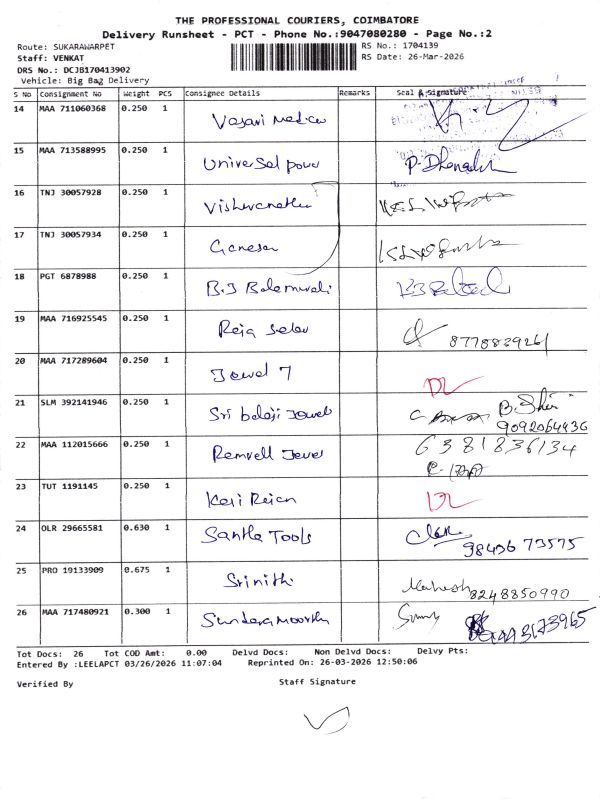 THE PROFESSIONAL COURIERS, COIMBATORE
Delivery Runsheet - PCT - Phone No.:9047080280 - Page No.:2
Route: SUKARAWARPET RS No.: 1704139
Staff: VENKAT RS Date: 26-Mar-2026
DRS No.: DCJB170413902
Vehicle: Big Bag Delivery
S No Consignment No Weight PCS Consignee Details Remarks Seal & Signature
14 MAA 711060368 0.250 1 Vasavi
15 MAA 713588995 0.250 1 Universal power
16 TNJ 30057928 0.250 1 Vishwanath
17 TNJ 30057934 0.250 1 Ganesan
18 PGT 6878988 0.250 1 B.J Balamurali
19 MAA 716925545 0.250 1 Raja
20 MAA 717289604 0.250 1 Jewel 7 DL
21 SLM 392141946 0.250 1 Sri balaji Jewel
9092064436
22 MAA 112015666 0.250 1 Jewel 6381836134
23 TUT 1191145 0.250 1 DL
24 OLR 29665581 0.630 1 Santha Tools
98436 73575
25 PRO 19133909 0.675 1 Srinithi Mahesh 8248850990
26 MAA 717480921 0.300 1 Sundaramoorthy
Tot Docs: 26 Tot COD Amt: 0.00 Delvd Docs: Non Delvd Docs: Delvy Pts:
Entered By :LEELAPCT 03/26/2026 11:07:04 Reprinted On: 26-03-2026 12:50:06
Verified By Staff Signature